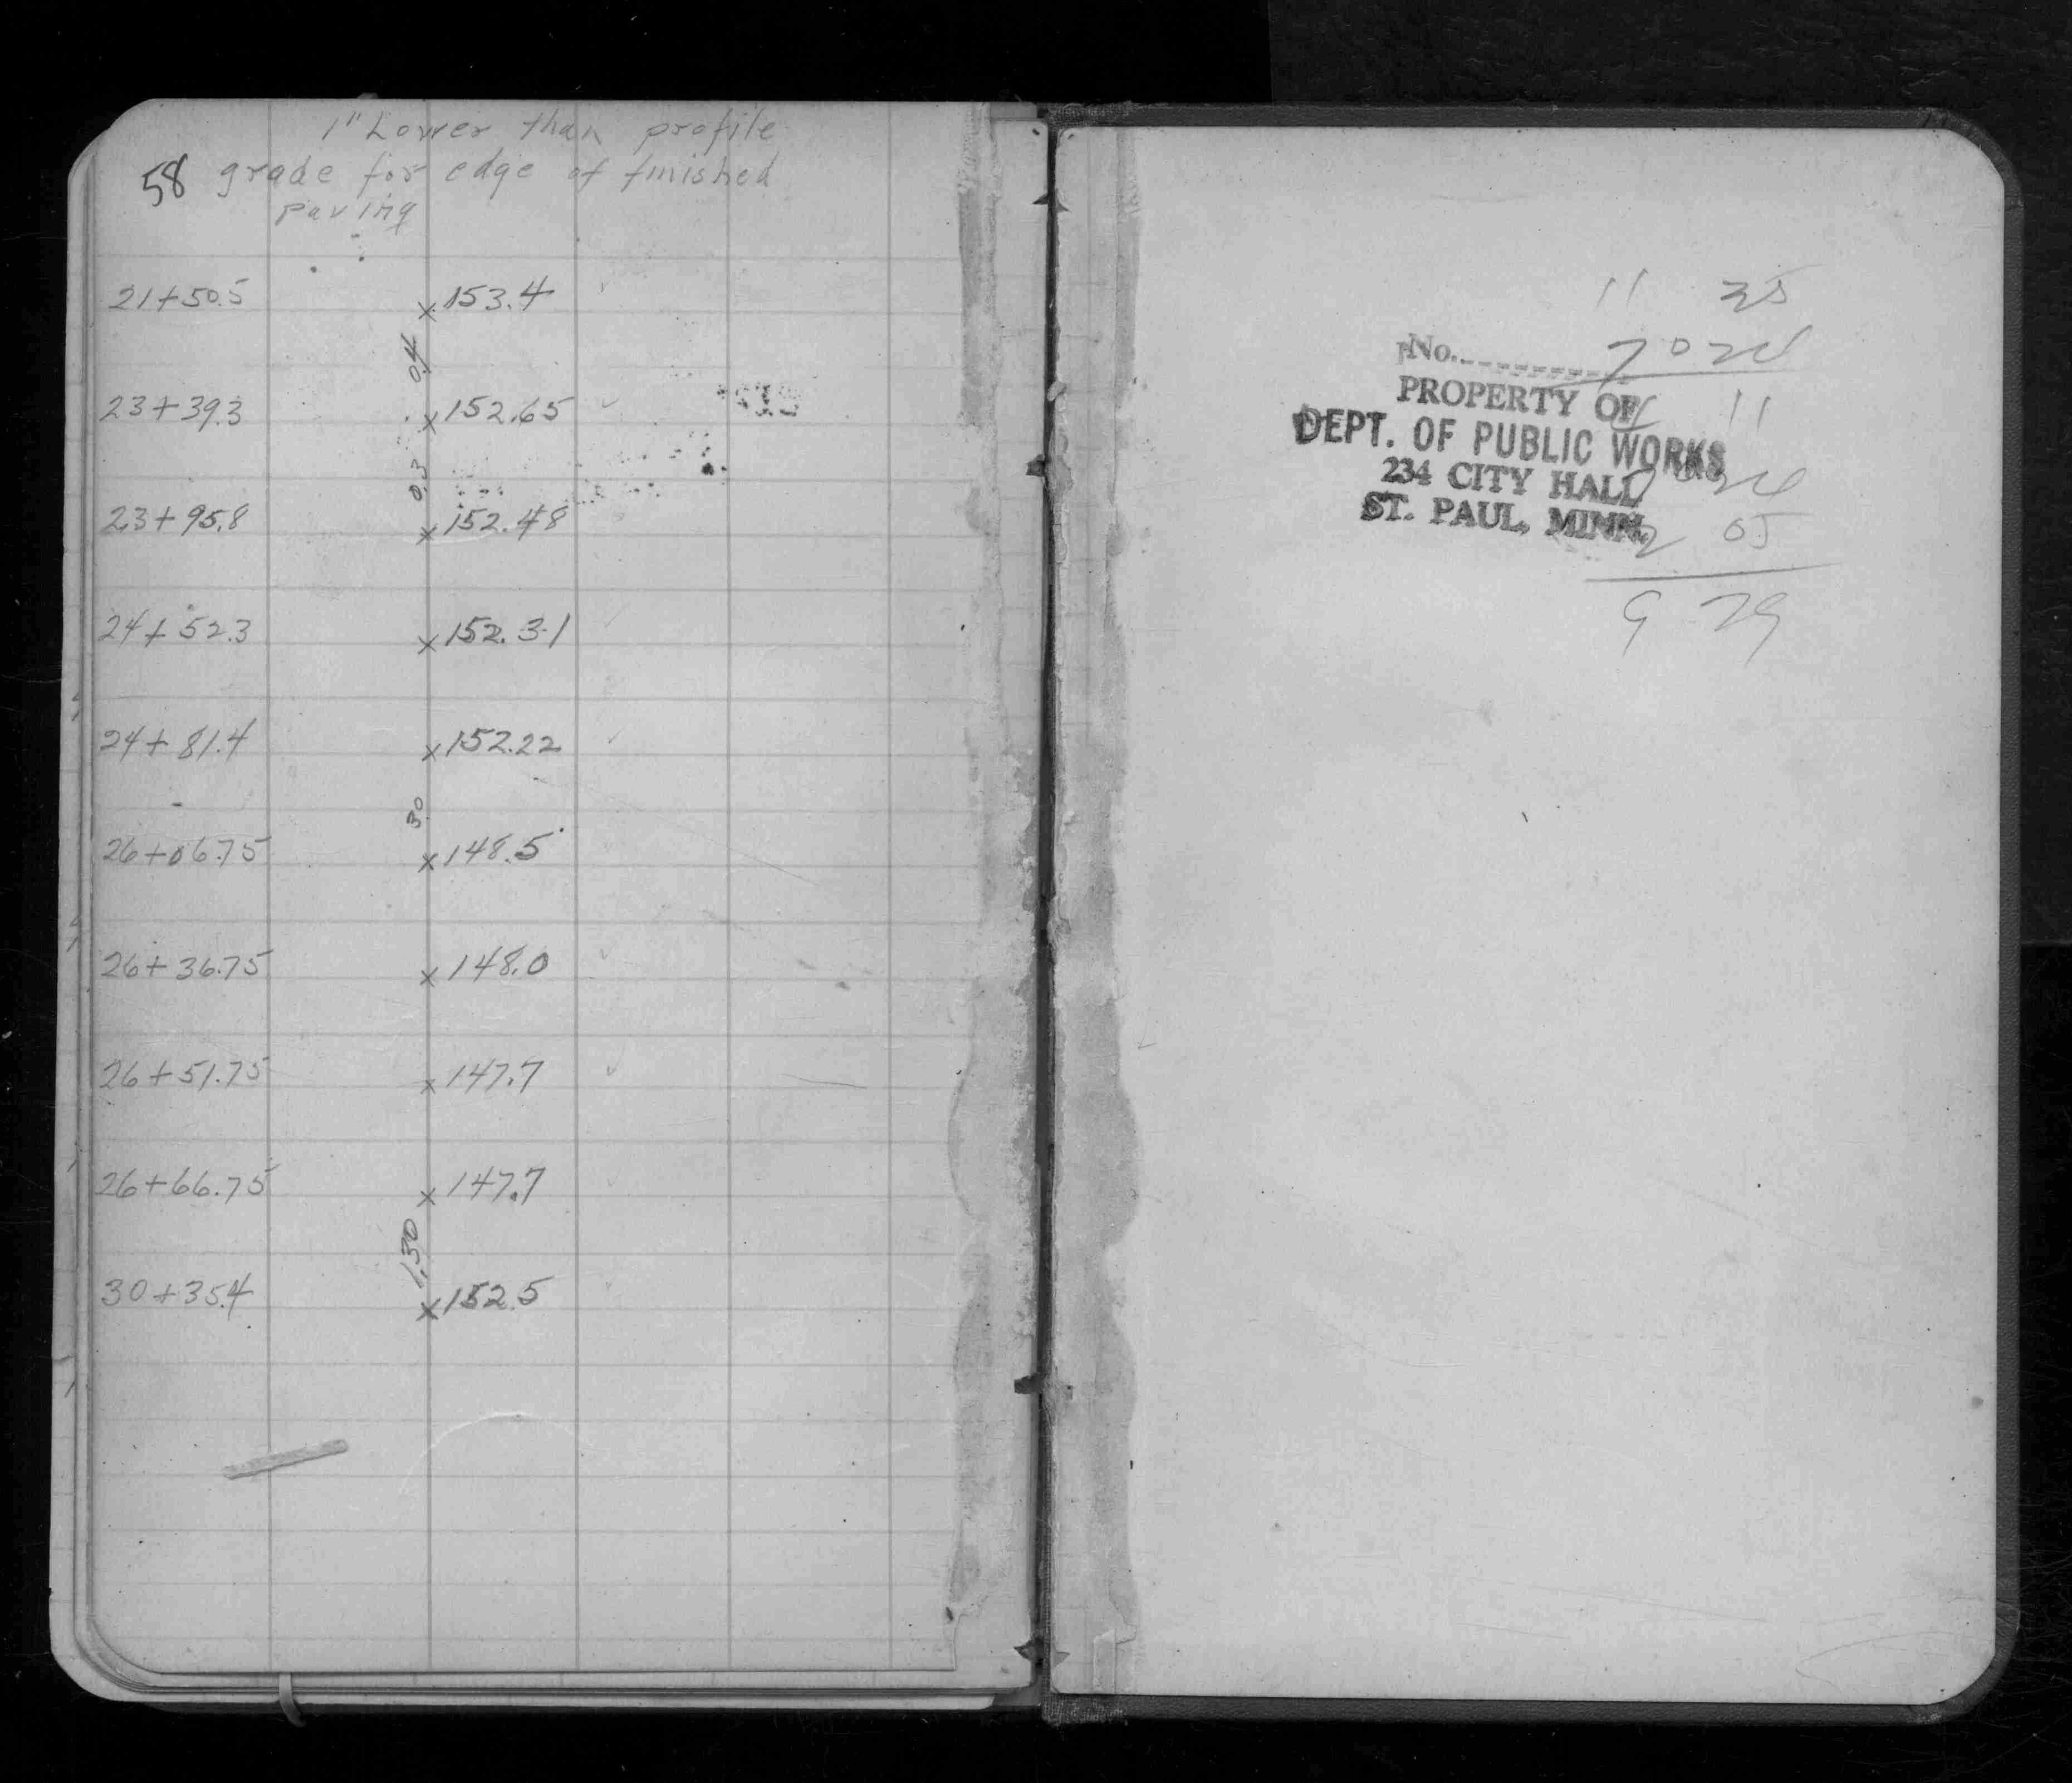 1" Lower than profile
58 grade for edge of finished
paving
21+50.5 x 153.4
0.4
23+39.3 x 152.65
0.3
23+95.8 x 152.48
24+52.3 x 152.31
24+81.4 x 152.22
3.0
26+06.75 x 148.5
26+36.75 x 148.0
26+51.75 x 147.7
26+66.75 x 147.7
1.30
30+35.4 x 152.5
11 35
No.
PROPERTY OF
11
DEPT. OF PUBLIC WORKS
234 CITY HALL
ST. PAUL, MINN.
2 05
9 29